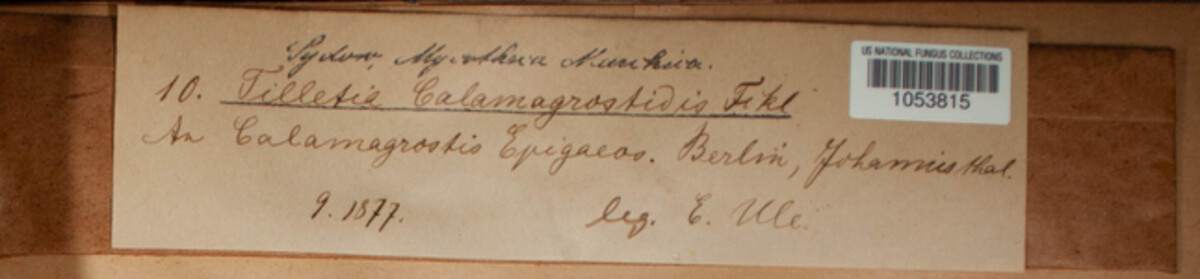 Sydow, Mycotheca Marchica.
10. Tilletia Calamagrostidis Fckl
An Calamagrostis Epigaeos. Berlin, Johannisthal.
9. 1877. leg. E. Ule.
US NATIONAL FUNGUS COLLECTIONS
1053815